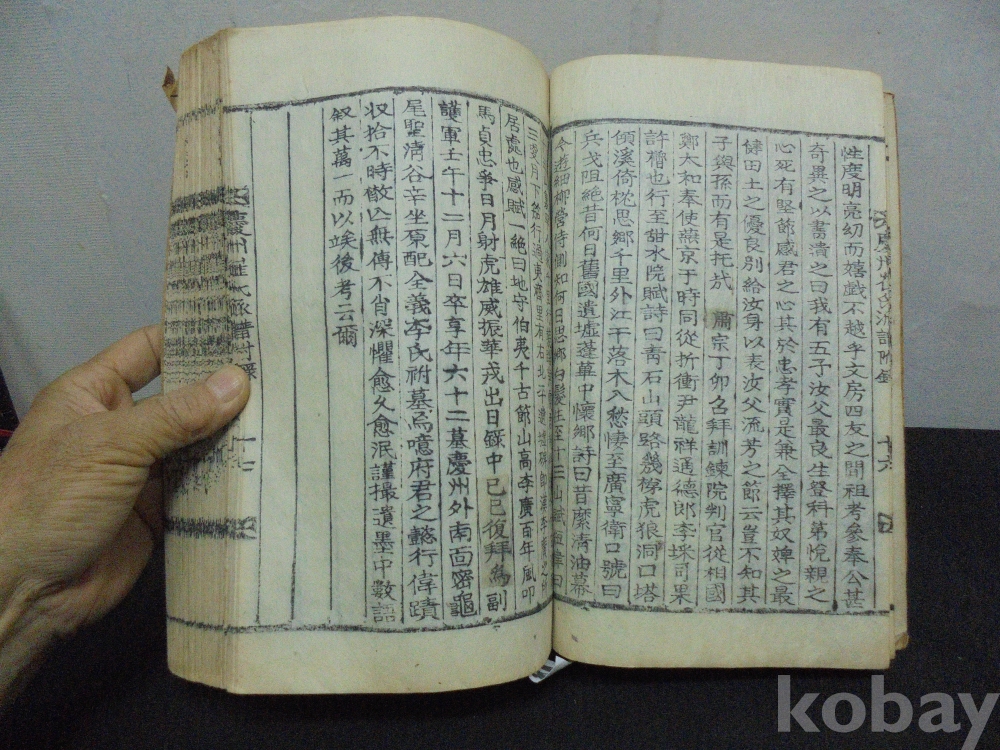 性度明亮幼而嬉戲不越乎文房四友之間祖考參奉公甚
奇異之以書潰之曰我有五子汝父最良生登科第悅親之
心死有堅節感君之心其於忠孝實是兼全擇其奴婢之最
健田土之優良別給汝身以表汝父流芳之節云豈不知其
子與孫而有是托哉 肅宗丁卯名拜訓鍊院判官從相國
鄭太和奉使燕京于時同從折衝尹龍祥通德郎李埰司果
許穡也行至甜水院賦詩曰靑石山頭路幾椁虎狼洞口塔
傾溪倚枕思鄕千里外江干落木入愁悽至廣寧衛口號曰
兵戈阻絶昔何日舊國遺墟蓬華中懷鄕詩曰昔縻淸油幕
今遊細柳營待
居處也感賦一絶曰地守伯夷千古節山高李廣百年風叩
馬貞忠爭日月射虎雄威振華戎出日錄中己巳復拜爲副
護軍壬午十二月六日卒享年六十二墓慶州外南面密龜
尾聖淸谷辛坐原配全義李氏祔墓烏噫府君之懿行偉蹟
収拾不時散亾無傳不肖深懼愈久愈泯謹撮遺墨中數語
叙其萬一而以竢後考云爾
十七
十六
kobay